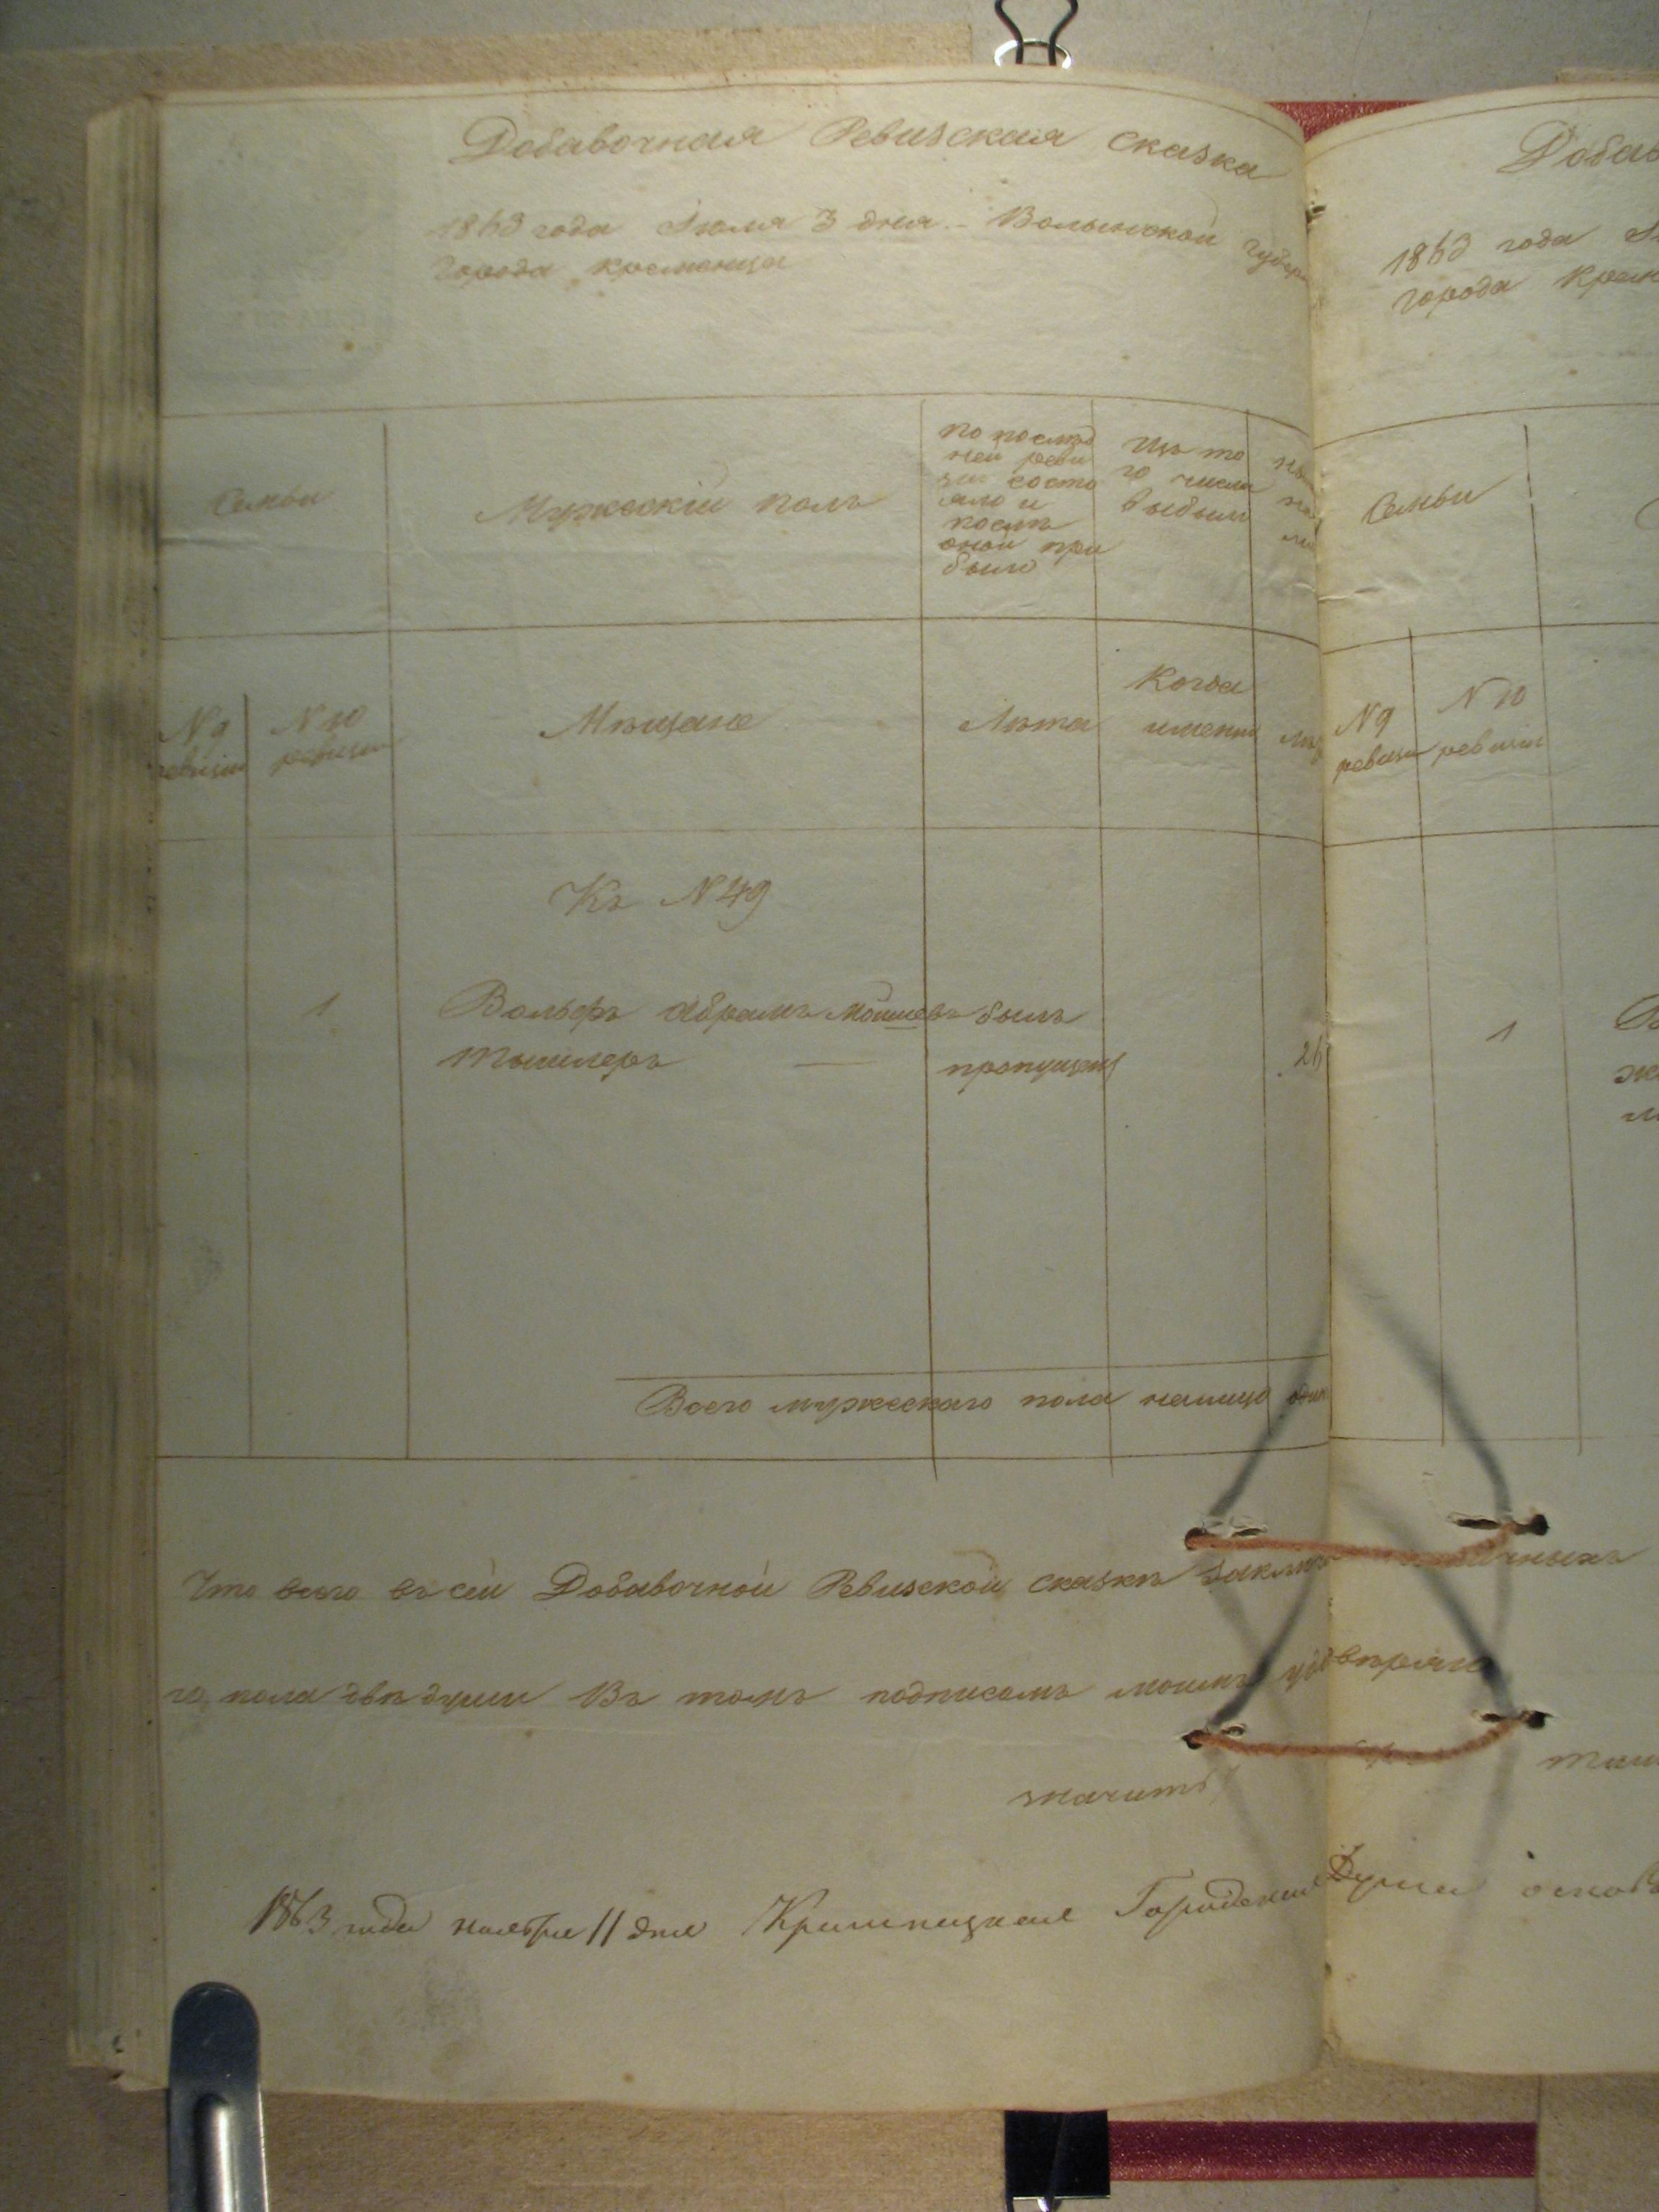 Добавочная Ревизская сказка
1863 года Июля 3 дня - Волынской губер
города кременца
Семьи
Мужескій полъ
по послѣд
ней реви
зіи состо
яло и
послѣ
оной при
было
Изъ то
го числа
выбыло
N 9
ревизіи
N 10
ревизіи
Мѣщане
Лѣта
Когда
именно
Къ N 49
1
Вольфъ Абрамъ Мошковъ былъ
Тышлеръ — пропущенъ
26
Всего мужескаго пола налицо один
Что всего въ сей Добавочной Ревизской сказкѣ
го пола двѣ души Въ томъ подписомъ моимъ удовѣряю
значитъ
1863 года ноября 11 дня Кременецкая Городская Дума
Добав
1863 года
города Крем
Семьи
N 9
ревизіи
N 10
ревизіи
1